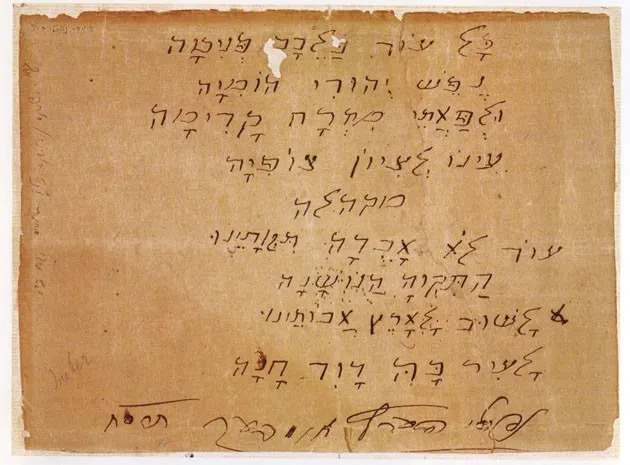 כל עוד בלבב פנימה
נפש יהודי הומיה
ולפאתי מזרח קדימה
עינו לציון צופיה
מקהלה
עוד לא אבדה תקותינו
התקוה הנושנה
לשוב לארץ אבותינו
לעיר בה דוד חנה
נפתלי הערץ אימבער תרסח
Imber